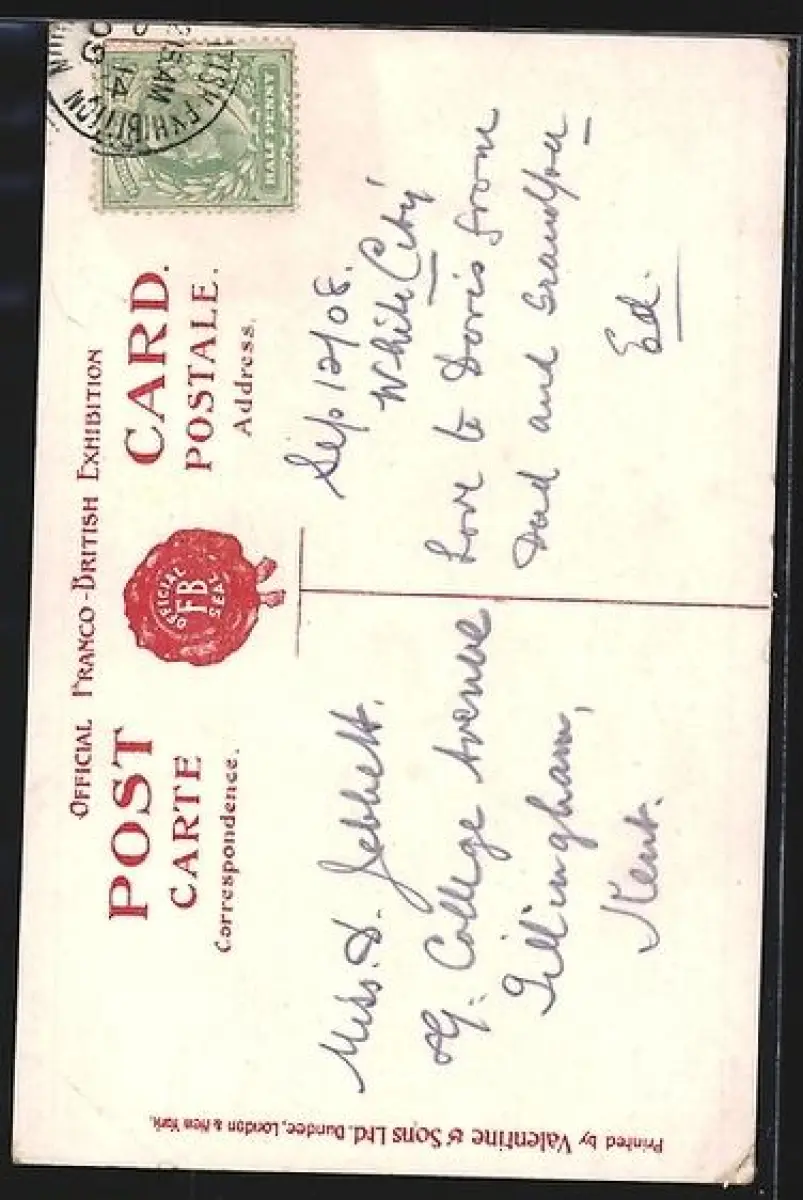 OFFICIAL FRANCO-BRITISH EXHIBITION
POST CARD.
CARTE POSTALE.
Correspondence.
Address.
OFFICIAL
FB
SEAL
HALF PENNY
EXHIBITION
15 AM
14
Miss. D. Jebbett.
College Avenue
Gillingham,
Kent.
Sep 12/08.
White City
Love to Doris from
Dad and Grandpa
Ed.
Printed by Valentine & Sons Ltd. Dundee, London & New York.